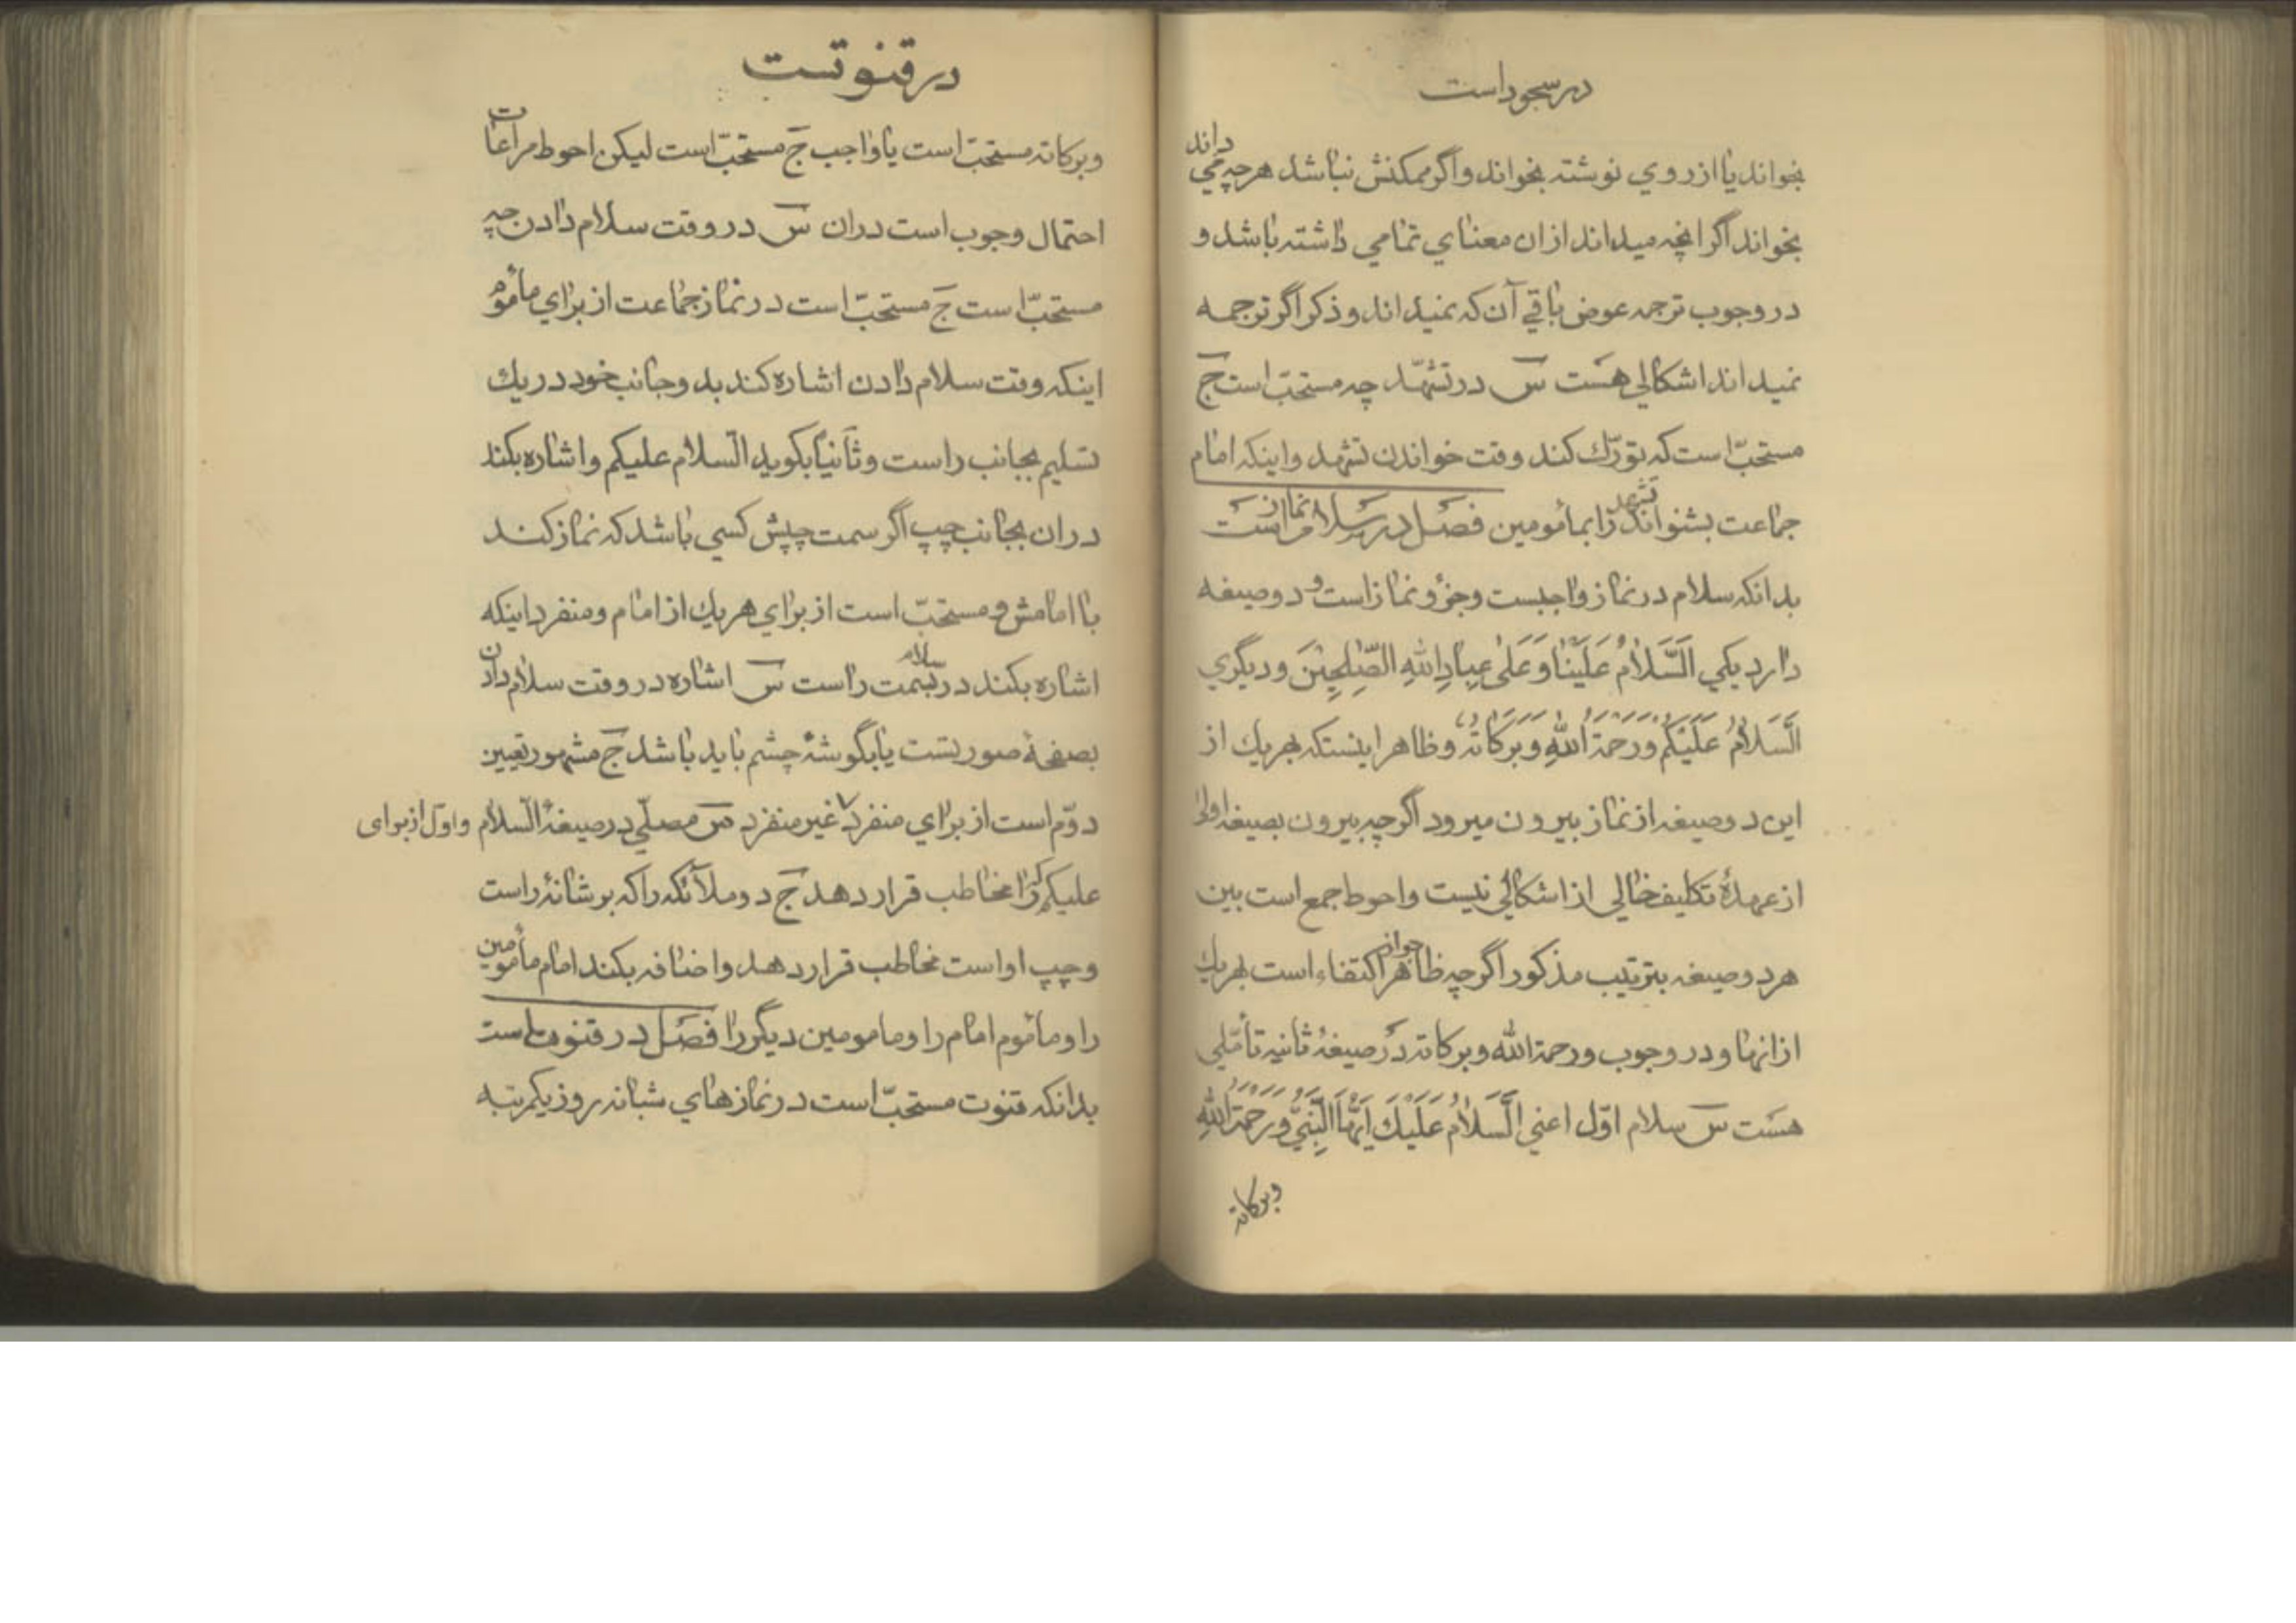 در سجود است
بخواند یا از روي نوشته بخواند و اگر ممکنش نباشد هرچه مي داند
بخواند اگر انچه میداند ازان معناي تمامي داشته باشد و
در وجوب ترجمه عوض باقي آن که نمیداند و ذکر اگر ترجمه
نمیداند اشکالي هست س در تشهّد چه مستحبّ است ج
مستحبّ است که تورّك کند وقت خواندن تشهد و اینکه امام
جماعت بشنواند تشهد را بمأمومین فصل در سلام نماز است
بدانکه سلام در نماز واجبست و جزؤ نماز است و دو صیغه
دارد یکي اَلسَّلامُ عَلَیْنا وَعَلیٰ عِبادِ اللهِ الصّٰلِحِیْنَ و دیگري
اَلسَّلامُ عَلَیْکُمْ وَرَحْمَةُ اللهِ وَبَرَکاتُهُ و ظاهر اینستکه بهر یك از
این دو صیغه از نماز بیرون میرود اگرچه بیرون بصیغه اولی
از عهدهٔ تکلیف خالي از اشکالي نیست و احوط جمع است بین
هر دو صیغه بترتیب مذکور اگرچه ظاهرا جواز اکتفاء است بهر یك
ازانها و در وجوب ورحمة الله وبرکاته در صیغهٔ ثانیه تأمّلي
هست س سلام اوّل اعني اَلسَّلامُ عَلَیْكَ اَیُّهَا النَّبِيُّ وَرَحْمَةُ اللهِ
وبرکاته
در قنوتست
وبرکاته مستحبّ است یا واجب ج مستحبّ است لیکن احوط مراعات
احتمال وجوب است دران س در وقت سلام دادن چه
مستحبّ است ج مستحبّ است در نماز جماعت از براي مأموم
اینکه وقت سلام دادن اشاره کند بدو جانب خود در یك
تسلیم بجانب راست و ثانیاً بکوید السّلام علیکم و اشاره بکند
دران بجانب چپ اگر سمت چپش کسي باشد که نماز کند
با امامش و مستحبّ است از براي هر یك از امام و منفرد اینکه
اشاره بکند در سلام بسمت راست س اشاره در وقت سلام دادن
بصفحهٔ صورتست یا بگوشهٔ چشم باید باشد ج مشهور تعیین
دوّم است از براي منفرد و اوّل از برای غیر منفرد س مصلّي در صیغهٔ السّلام
علیکم که را مخاطب قرار دهد ج دو ملائکه را که بر شانهٔ راست
و چپ او است مخاطب قرار دهد و اضافه بکند امام مأمومین
را و مأموم امام را و مامومین دیگر را فصل در قنوت است
بدانکه قنوت مستحبّ است در نمازهاي شبانه روز یکمرتبه